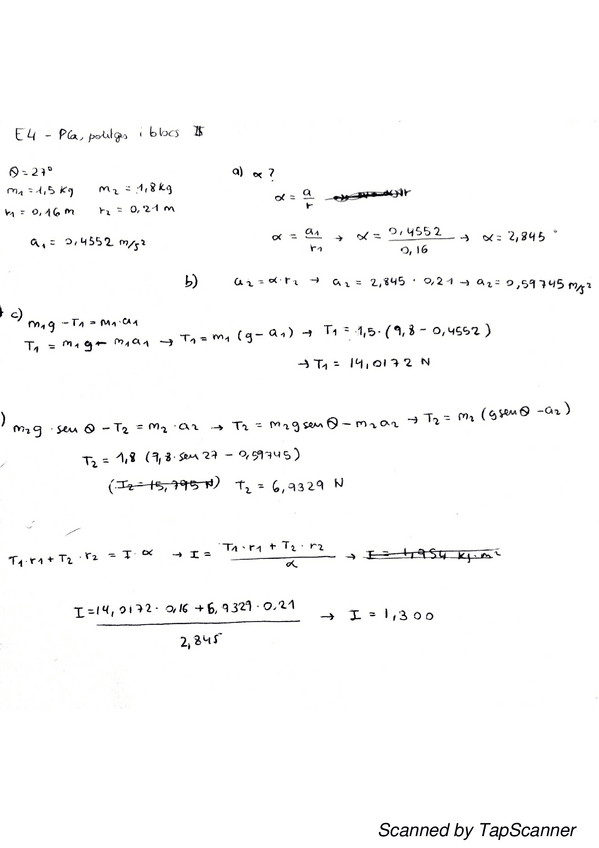 E4 - Pla, politges i blocs II
θ = 27°
m1 = 1,5 kg m2 = 1,8 kg
r1 = 0,16 m r2 = 0,21 m
a1 = 0,4552 m/s²
a) α ?
α = a/r
α = a1/r1 → α = 0,4552/0,16 → α = 2,845
b) a2 = α · r2 → a2 = 2,845 · 0,21 → a2 = 0,59745 m/s²
c) m1g - T1 = m1 · a1
T1 = m1g - m1a1 → T1 = m1 (g - a1) → T1 = 1,5 · (9,8 - 0,4552)
→ T1 = 14,0172 N
) m2g · sen θ - T2 = m2 · a2 → T2 = m2g sen θ - m2a2 → T2 = m2 (g sen θ - a2)
T2 = 1,8 (9,8 · sen 27 - 0,59745)
(T2 = 15,795 N) T2 = 6,9329 N
T1·r1 + T2·r2 = I·α → I = T1·r1 + T2·r2/α → I = 1,954 kg·m²
I = 14,0172 · 0,16 + 6,9329 · 0,21/2,845 → I = 1,300
Scanned by TapScanner